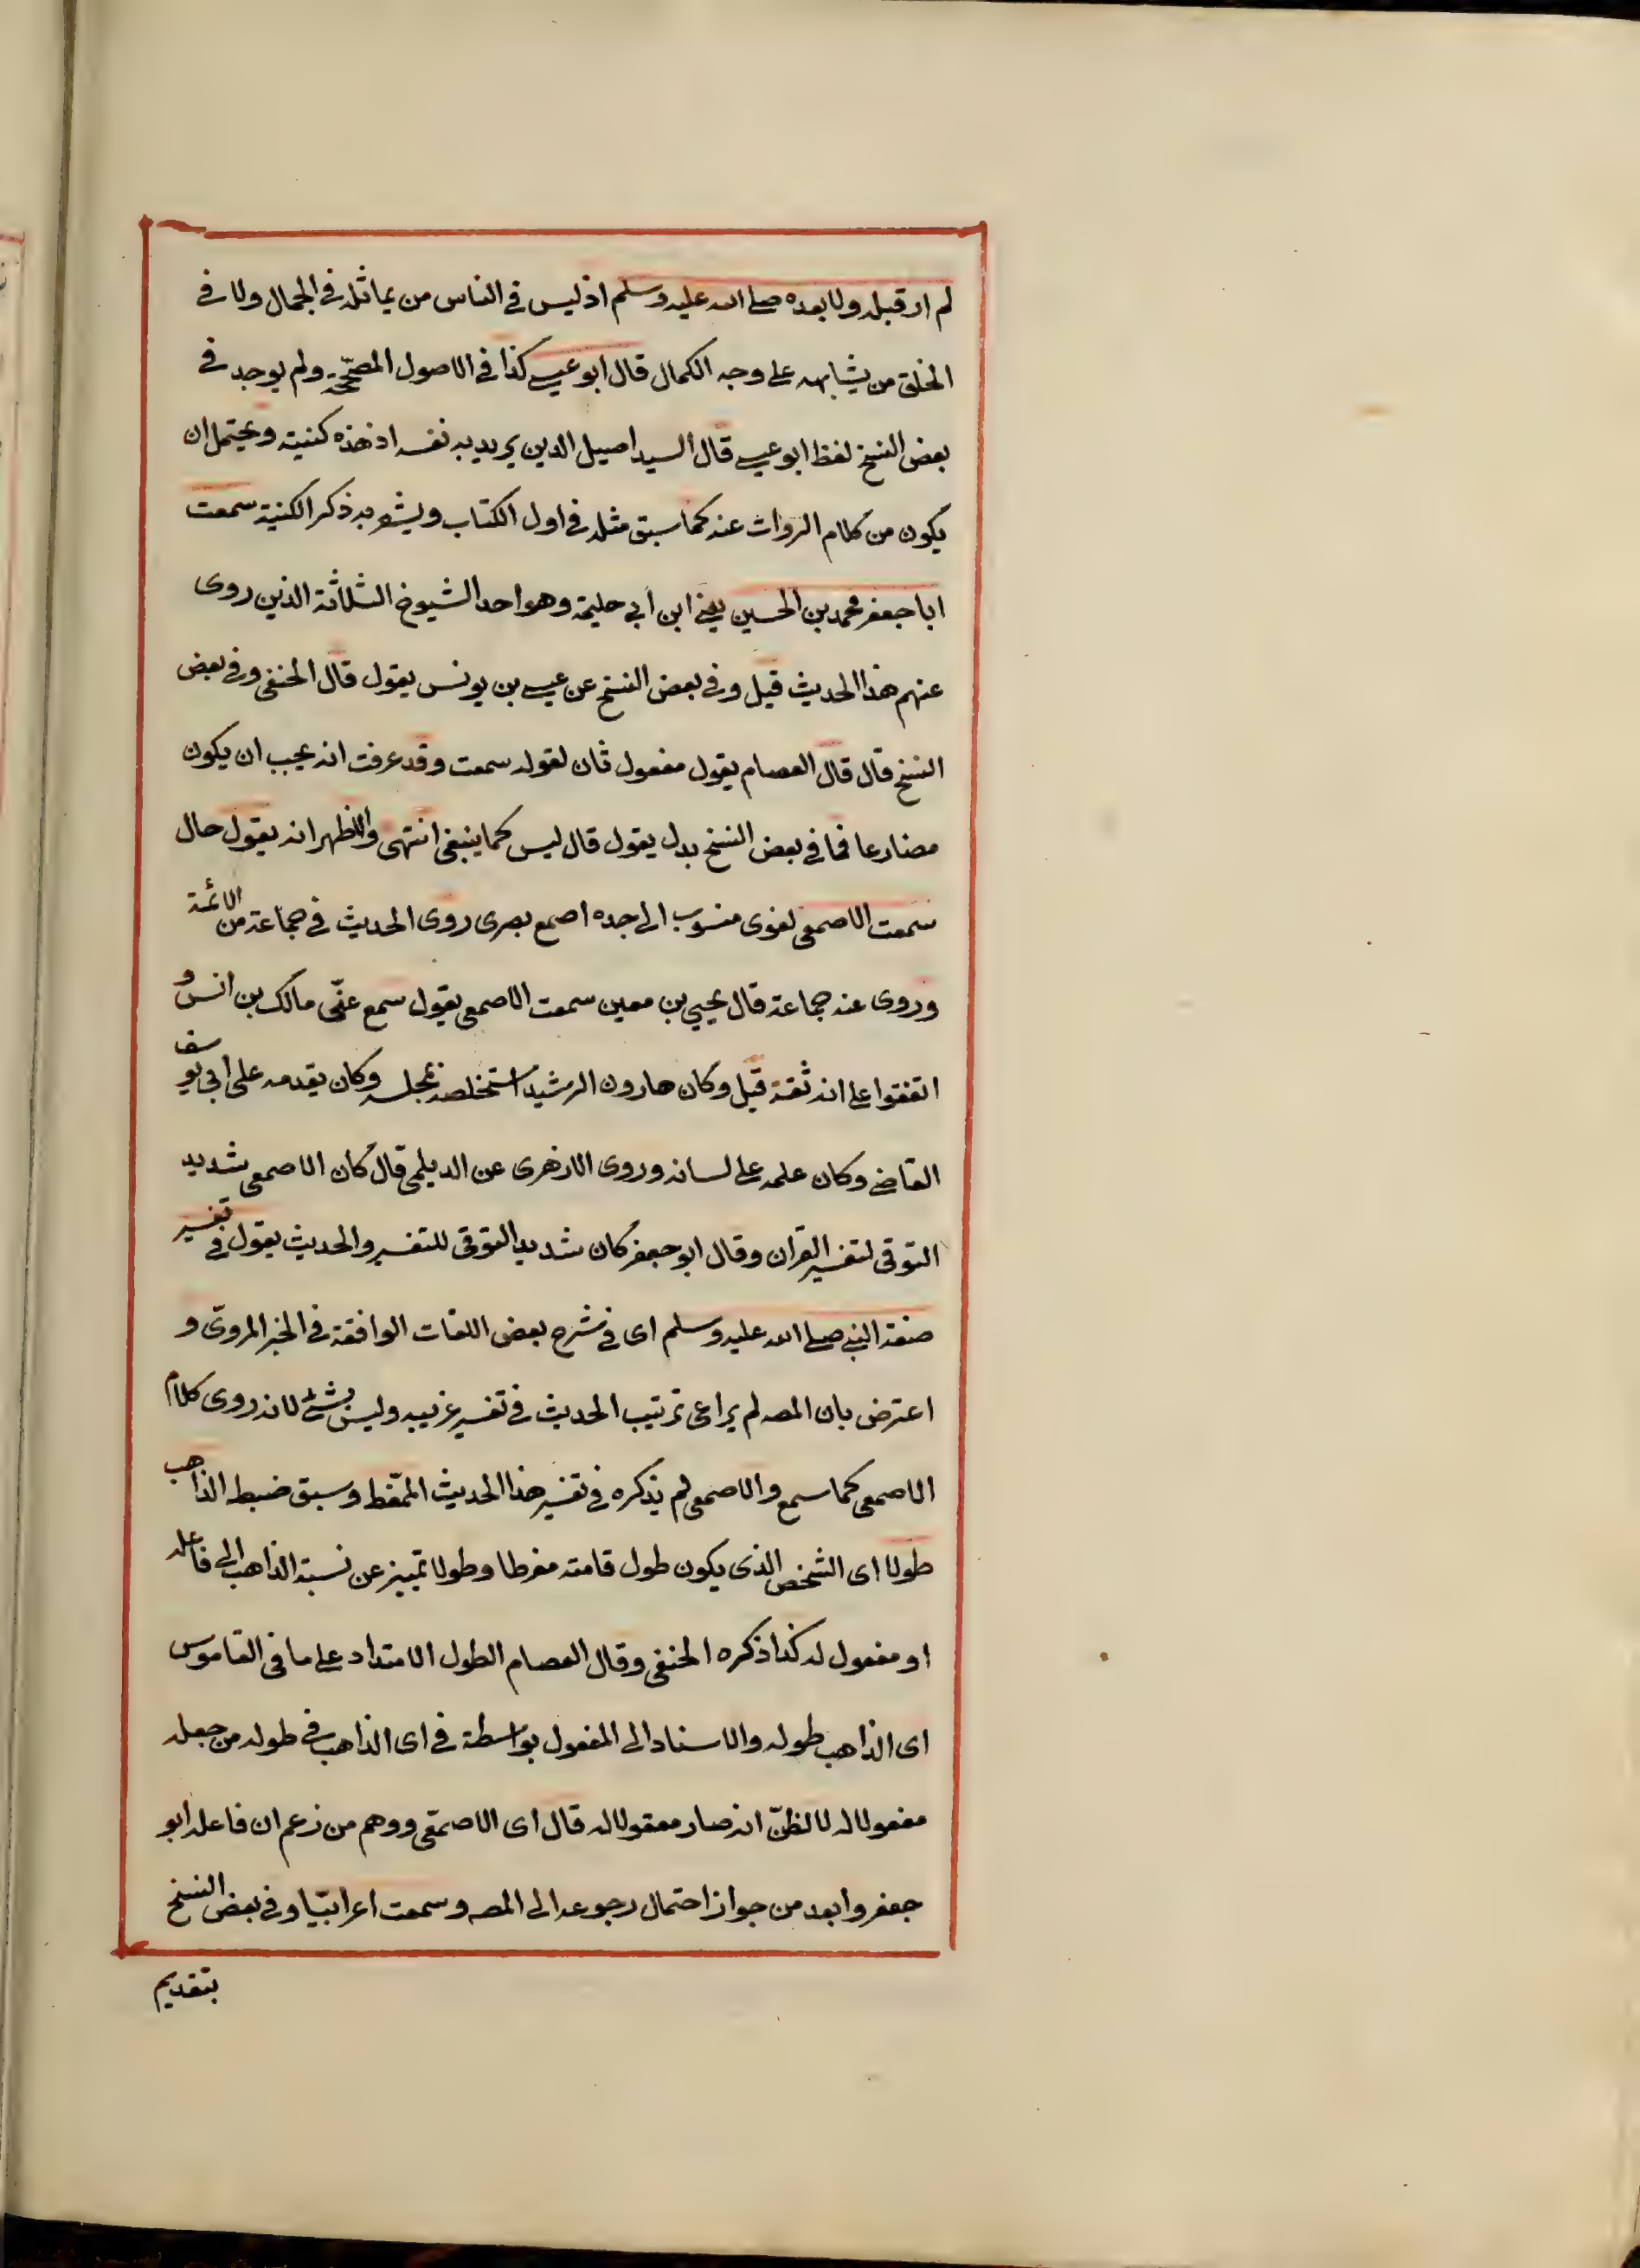 لم ار قبله ولا بعده صلى الله عليه وسلم اذ ليس في الناس من يماثله في الجمال ولا في
الخلق من يشابهه على وجه الكمال قال ابو عيسى كذا في الاصول المصححة ولم يوجد في
بعض النسخ لفظ ابو عيسى قال السيد اصيل الدين يريد به نفسه اذ هذه كنيته ويحتمل ان
يكون من كلام الروات عنه كما سبق مثله في اول الكتاب ويشعر به ذكر الكنية سمعت
ابا جعفر محمد بن الحسين يعني ابن أبي حليمة وهو احد الشيوخ الثلاثة الذين روى
عنهم هذا الحديث قيل وفي بعض النسخ عن عيسى بن يونس يقول قال الحنفى وفي بعض
النسخ قال قال العصام يقول مفعول ثان لقوله سمعت وقد عرفت انه يجب ان يكون
مضارعا فما في بعض النسخ بدل يقول قال ليس كما ينبغى انتهى والاظهر انه يقول حال
سمعت الاصمعى لغوى منسوب الى جده اصمع بصرى روى الحديث في جماعة من الائمة
وروى عنه جماعة قال يحيى بن معين سمعت الاصمعى يقول سمع عنّى مالك بن انس و
اتفقوا على انه ثقة قيل وكان هارون الرشيد استخلصه لمجلسه وكان يقدمه على ابى يوسف
القاضى وكان علمه على لسانه وروى الازهرى عن الديلمى قال كان الاصمعى شديد
التوقى لتفسير القران وقال ابو جعفر كان شديد التوقى للتفسير والحديث يقول في تفسير
صفة النبى صلى الله عليه وسلم اى في شرح بعض اللغات الواقعة في الخبر المروىّ و
اعترض بان المصـ لم يراعى ترتيب الحديث في تفسير غريبه وليس بشئ لانه روى كلام
الاصمعى كما سمع والاصمعى لم يذكره في تفسير هذا الحديث الممّغط وسبق ضبط الذاهب
طولا اى الشخص الذى يكون طول قامته مفرطا وطولا تمييز عن نسبة الذاهب الى فاعله
او مفعول له كذا ذكره الحنفى وقال العصام الطول الامتداد على ما في القاموس
اى الذاهب طوله والاسناد الى المفعول بواسطة في اى الذاهب في طوله من جعله
مفعولا له لا لظنّ انه صار معقولا له قال اى الاصمعّى ووهم من زعم ان فاعله ابو
جعفر وابعد من جواز احتمال رجوعه الى المصـ وسمعت اعرابيّا وفي بعض النسخ
بتقديم